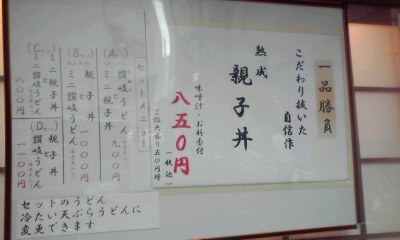 一品勝負
こだわり抜いた
自信作
熟成
親子丼
味噌汁・お新香付
八五〇円
(税込)
ご飯大盛り五〇円増
セットメニュー
(A)
讃岐うどん
ミニ親子丼
九〇〇円
(B)
親子丼
ミニ讃岐うどん
一〇〇〇円
(C)
ミニ親子丼
ミニ讃岐うどん
八〇〇円
(D)
親子丼
讃岐うどん
一一〇〇円
セットのうどん
冷たい天ぷらうどんに
変更できます